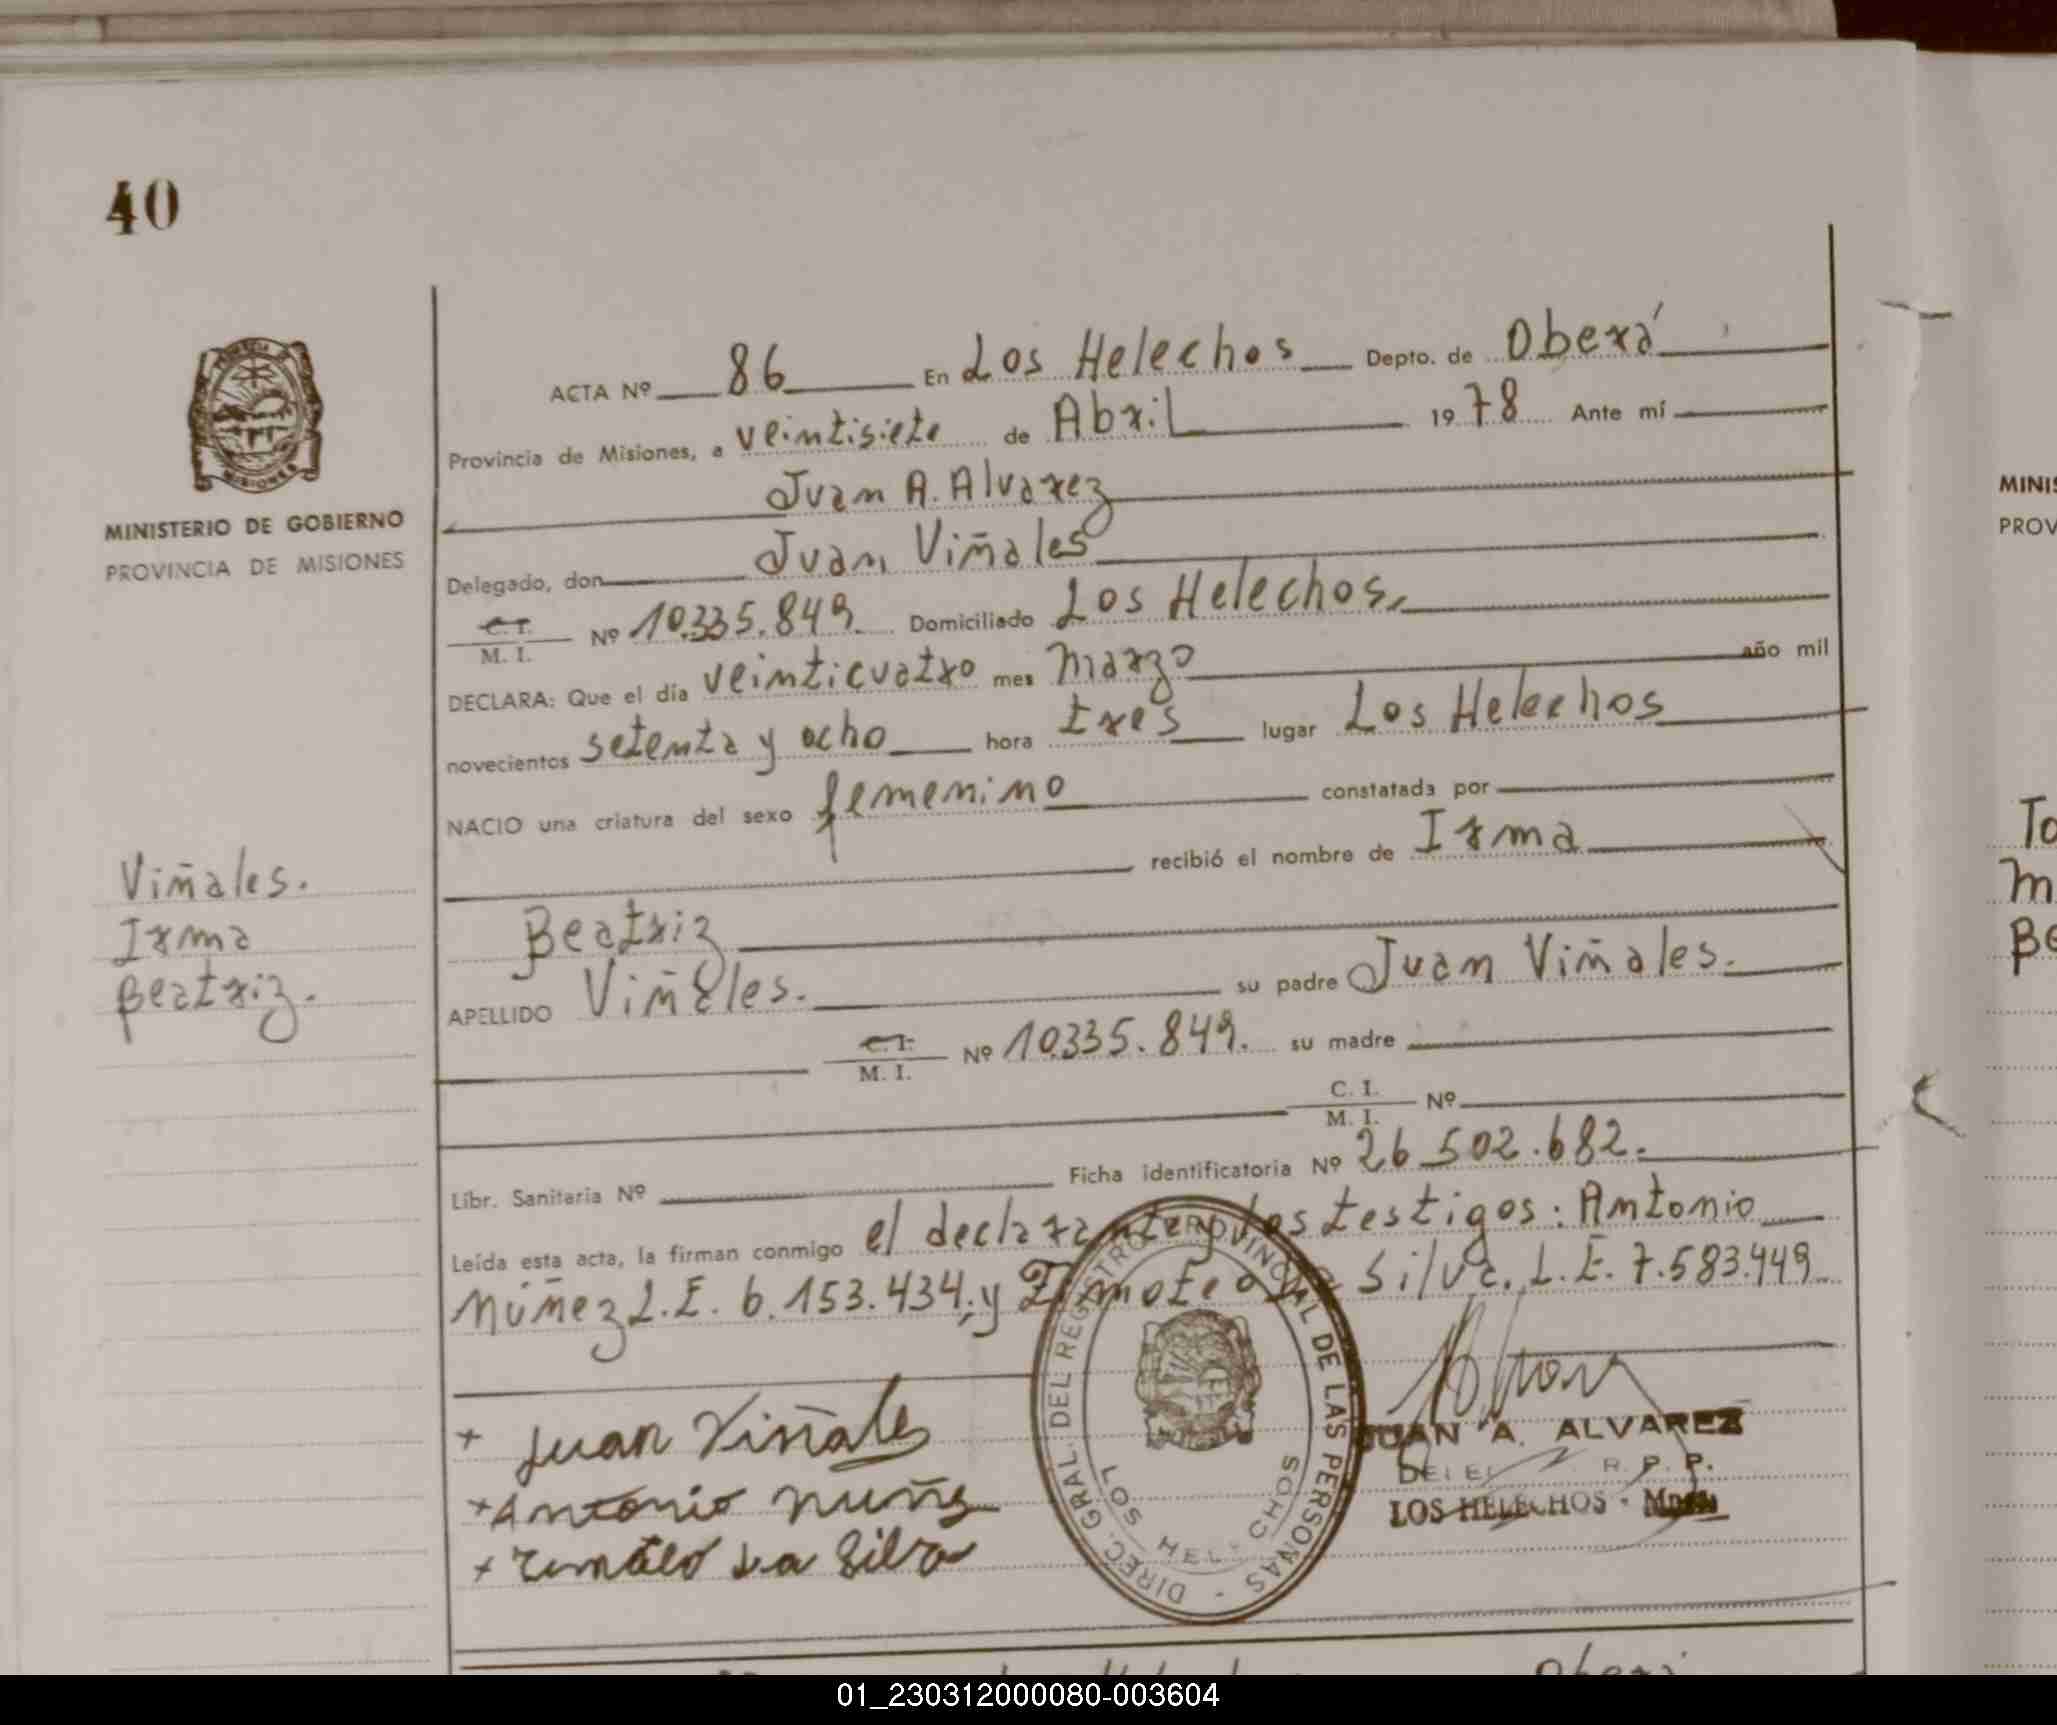 40
ACTA Nº 86 En Los Helechos Depto. de Oberá
Provincia de Misiones, a veintisiete de Abril 1978 Ante mí
Juan A. Alvarez
MINISTERIO DE GOBIERNO
PROVINCIA DE MISIONES
Delegado, don Juan Viñales
C. I. / M. I. Nº 10.335.849. Domiciliado Los Helechos,
DECLARA: Que el día veinticuatro mes marzo año mil
novecientos setenta y ocho hora tres lugar Los Helechos
NACIO una criatura del sexo femenino constatada por
recibió el nombre de Irma
Beatriz
Viñales.
Irma
Beatriz.
APELLIDO Viñales. su padre Juan Viñales.
C. I. / M. I. Nº 10335.849. su madre
C. I. / M. I. Nº
Libr. Sanitaria Nº Ficha identificatoria Nº 26.502.682.
Leída esta acta, la firman conmigo el declarante y los testigos: Antonio
Núñez L.E. 6.153.434, y Timoteo Silva. L.E. 7.583.949
Juan Viñales
Antonio Nuñez
Da Silva
DIREC. GRAL. DEL REGISTRO PROVINCIAL DE LAS PERSONAS -
LOS HELECHOS
JUAN A. ALVAREZ
R. P. P.
LOS HELECHOS - Mnes.
MINIS
PROV
To
m
Be
01_230312000080-003604